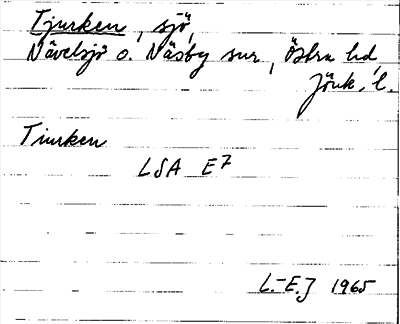 Tjurken, sjö,
Nävelsjö o. Näsby snr, Östra hd,
Jönk. l.
Tiurken
LSA E7
L.-E.J 1965